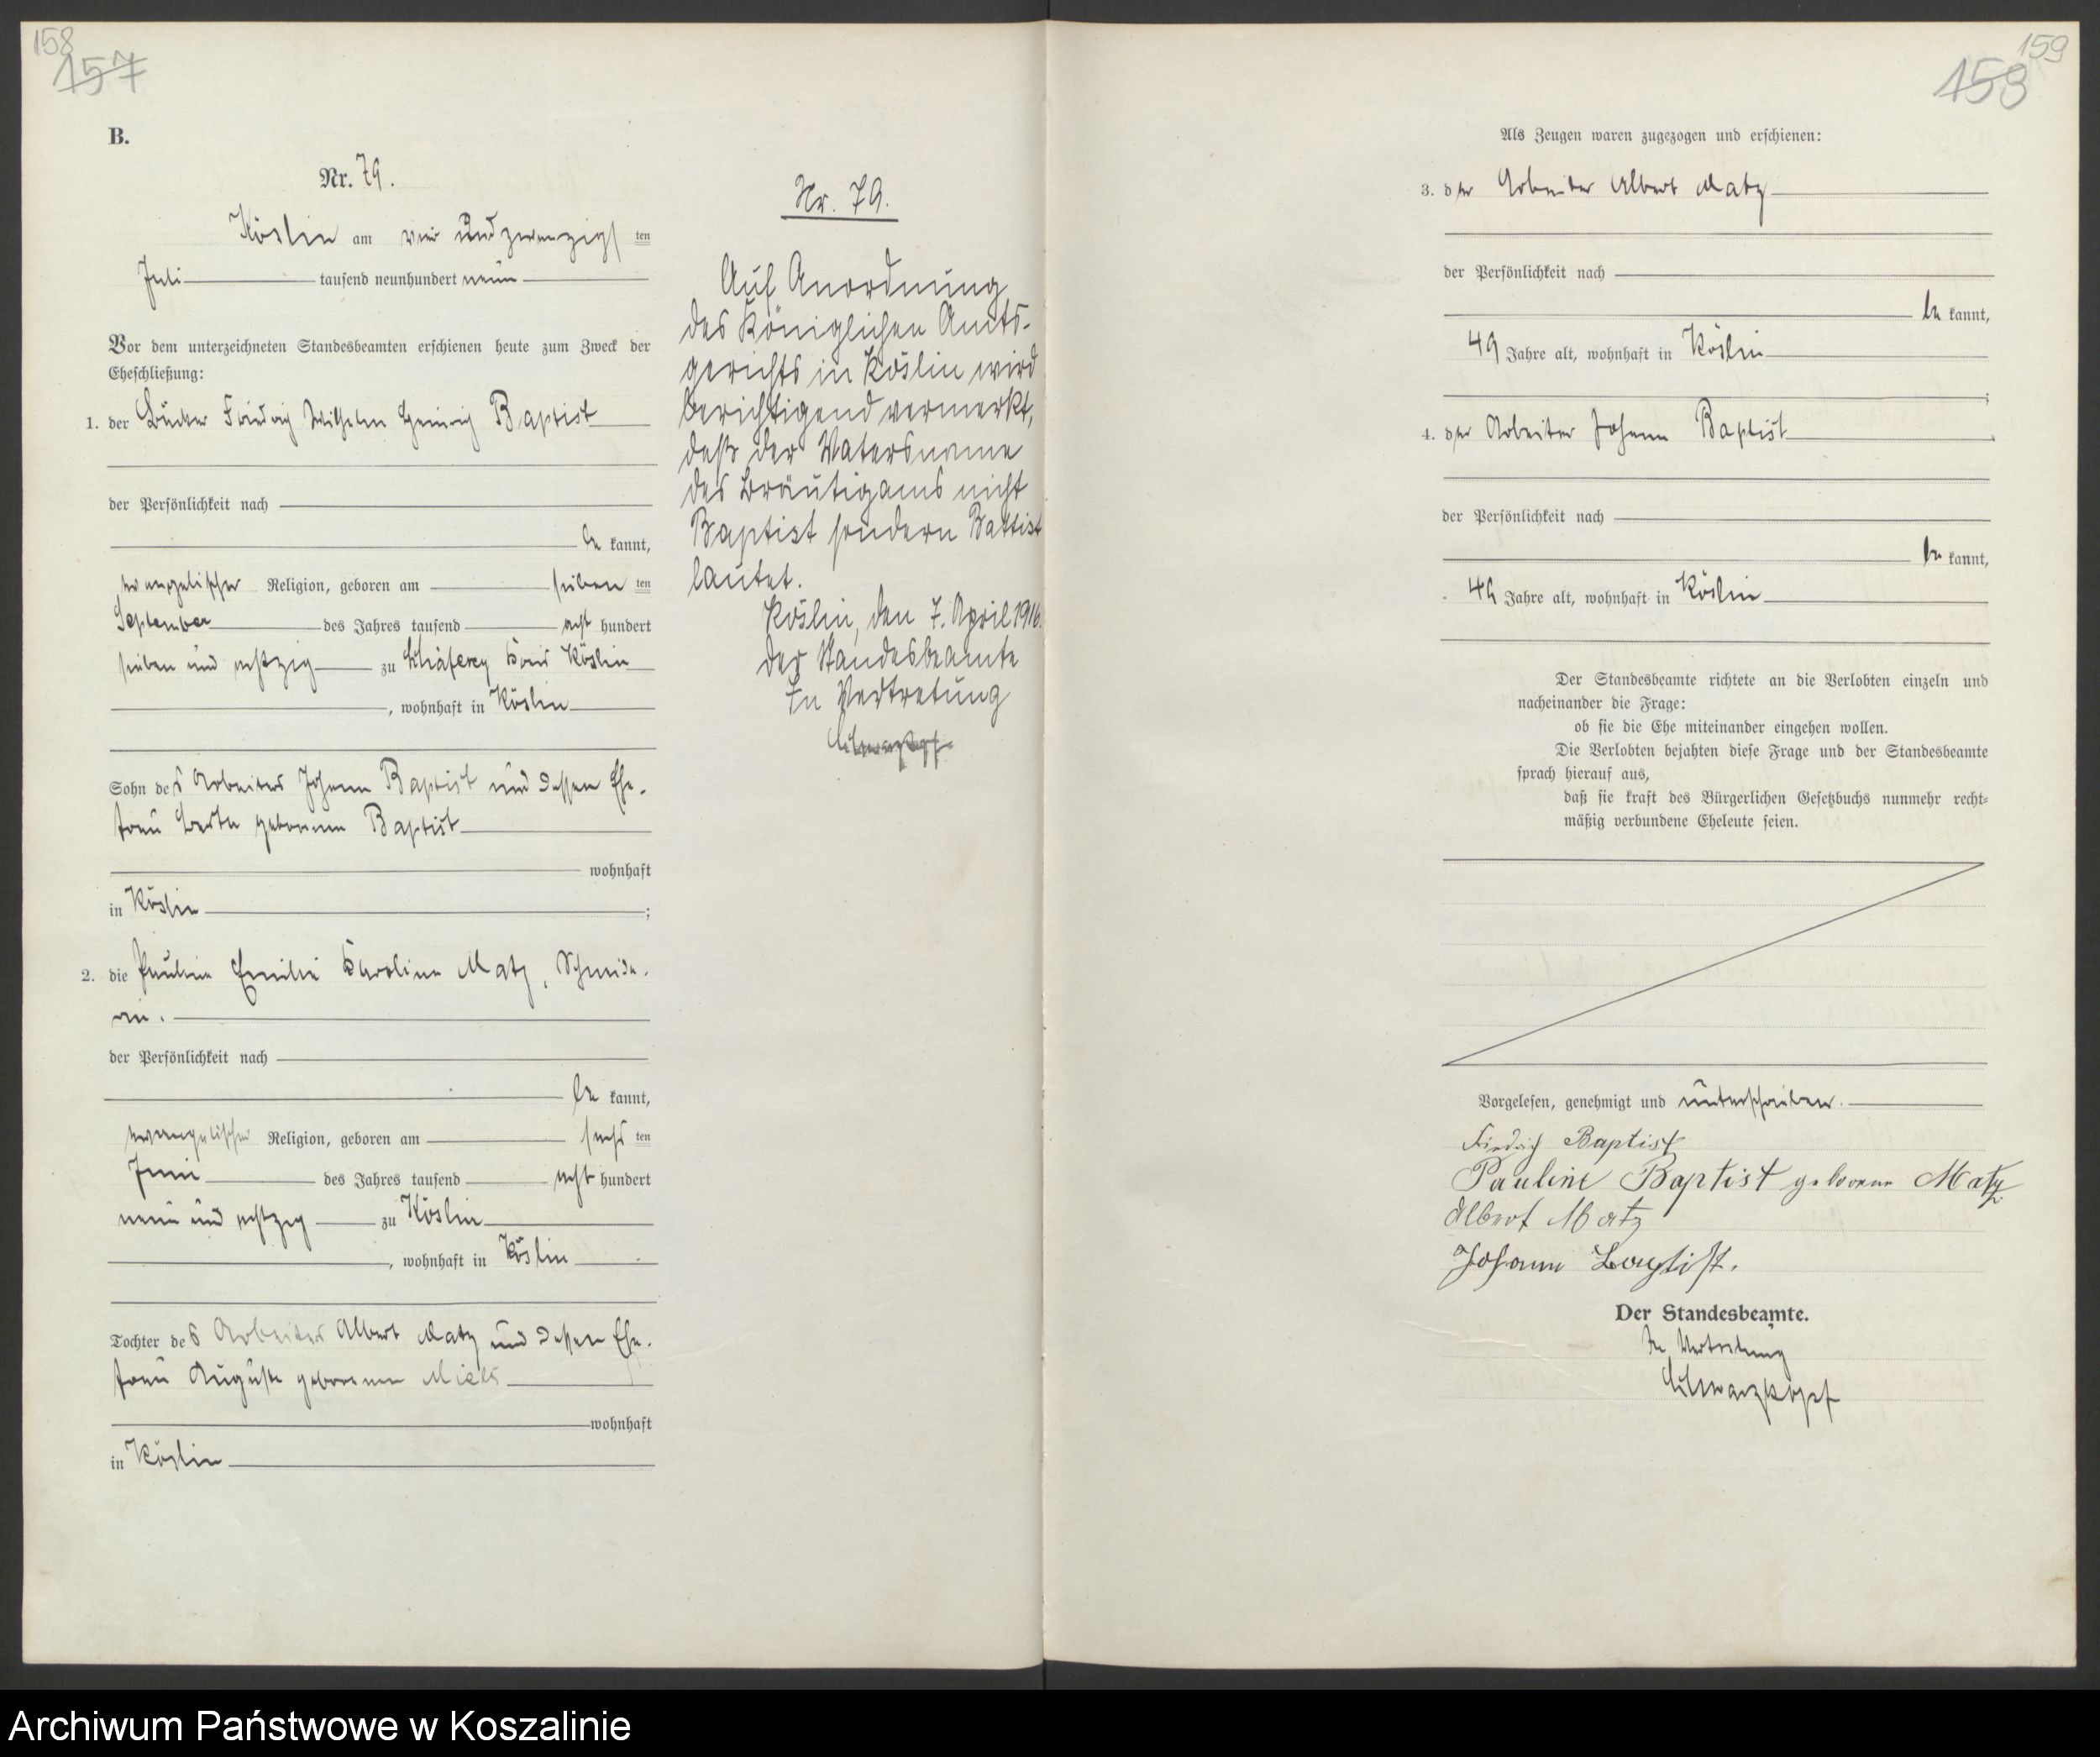 158
157
B.
Nr. 79.
Köslin am vier und zwanzigsten
Juli tausend neunhundert neun
Vor dem unterzeichneten Standesbeamten erschienen heute zum Zweck der
Eheschließung:
1. der Friedrich Wilhelm Heinrich Baptist
der Persönlichkeit nach
be kannt,
evangelischer Religion, geboren am sieben ten
September des Jahres tausend acht hundert
sieben und achtzig zu Schäferey Köslin
, wohnhaft in Köslin
Sohn des Arbeiters Johann Baptist und dessen Ehe-
frau Berta geborenen Baptist
wohnhaft
in Köslin ;
2. die Pauline Emilie Karoline Matz, Schneide-
rin.
der Persönlichkeit nach
be kannt,
evangelischer Religion, geboren am sechs ten
Juni des Jahres tausend acht hundert
neun und achtzig zu Köslin
, wohnhaft in Köslin
Tochter des Arbeiters Albert Matz und dessen Ehe-
frau Auguste geborenen
wohnhaft
in Köslin
Nr. 79.
Auf Anordnung
des Königlichen Amts-
gerichts in Köslin wird
berichtigend vermerkt,
daß der Vatersname
des Bräutigams nicht
Baptist sondern Battist
lautet.
Köslin, den 7. April 1916.
Der Standesbeamte
In Vertretung
Schwarzkopf
159
158
Als Zeugen waren zugezogen und erschienen:
3. der Arbeiter Albert Matz
der Persönlichkeit nach
be kannt,
49 Jahre alt, wohnhaft in Köslin
;
4. der Arbeiter Johann Baptist
der Persönlichkeit nach
be kannt,
Jahre alt, wohnhaft in Köslin
Der Standesbeamte richtete an die Verlobten einzeln und
nacheinander die Frage:
ob sie die Ehe miteinander eingehen wollen.
Die Verlobten bejahten diese Frage und der Standesbeamte
sprach hierauf aus,
daß sie kraft des Bürgerlichen Gesetzbuchs nunmehr recht-
mäßig verbundene Eheleute seien.
Vorgelesen, genehmigt und unterschrieben.
Friedrich Baptist
Pauline Baptist geborene Matz
Albert Matz
Johann Baptist.
Der Standesbeamte.
In Vertretung
Schwarzkopf
Archiwum Państwowe w Koszalinie